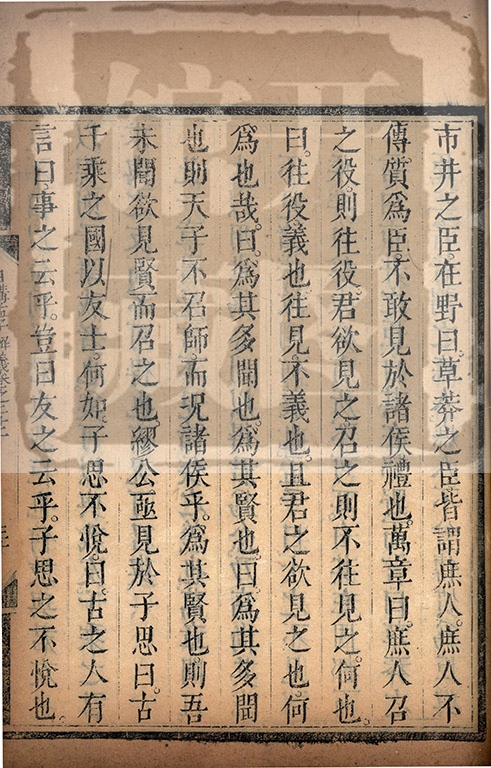 市井之臣。在野曰。草莽之臣。皆謂庶人。庶人不
傳質爲臣。不敢見於諸侯。禮也。萬章曰。庶人召
之役。則往役。君欲見之。召之則不往見之。何也。
曰。往役義也。往見不義也。且君之欲見之也。何
爲也哉。曰。爲其多聞也。爲其賢也。曰爲其多聞
也。則天子不召師。而況諸侯乎。爲其賢也。則吾
未聞欲見賢而召之也。繆公亟見於子思曰。古
千乘之國以友士。何如。子思不悅。曰。古之人有
言曰。事之云乎。豈曰友之云乎。子思之不悅也。